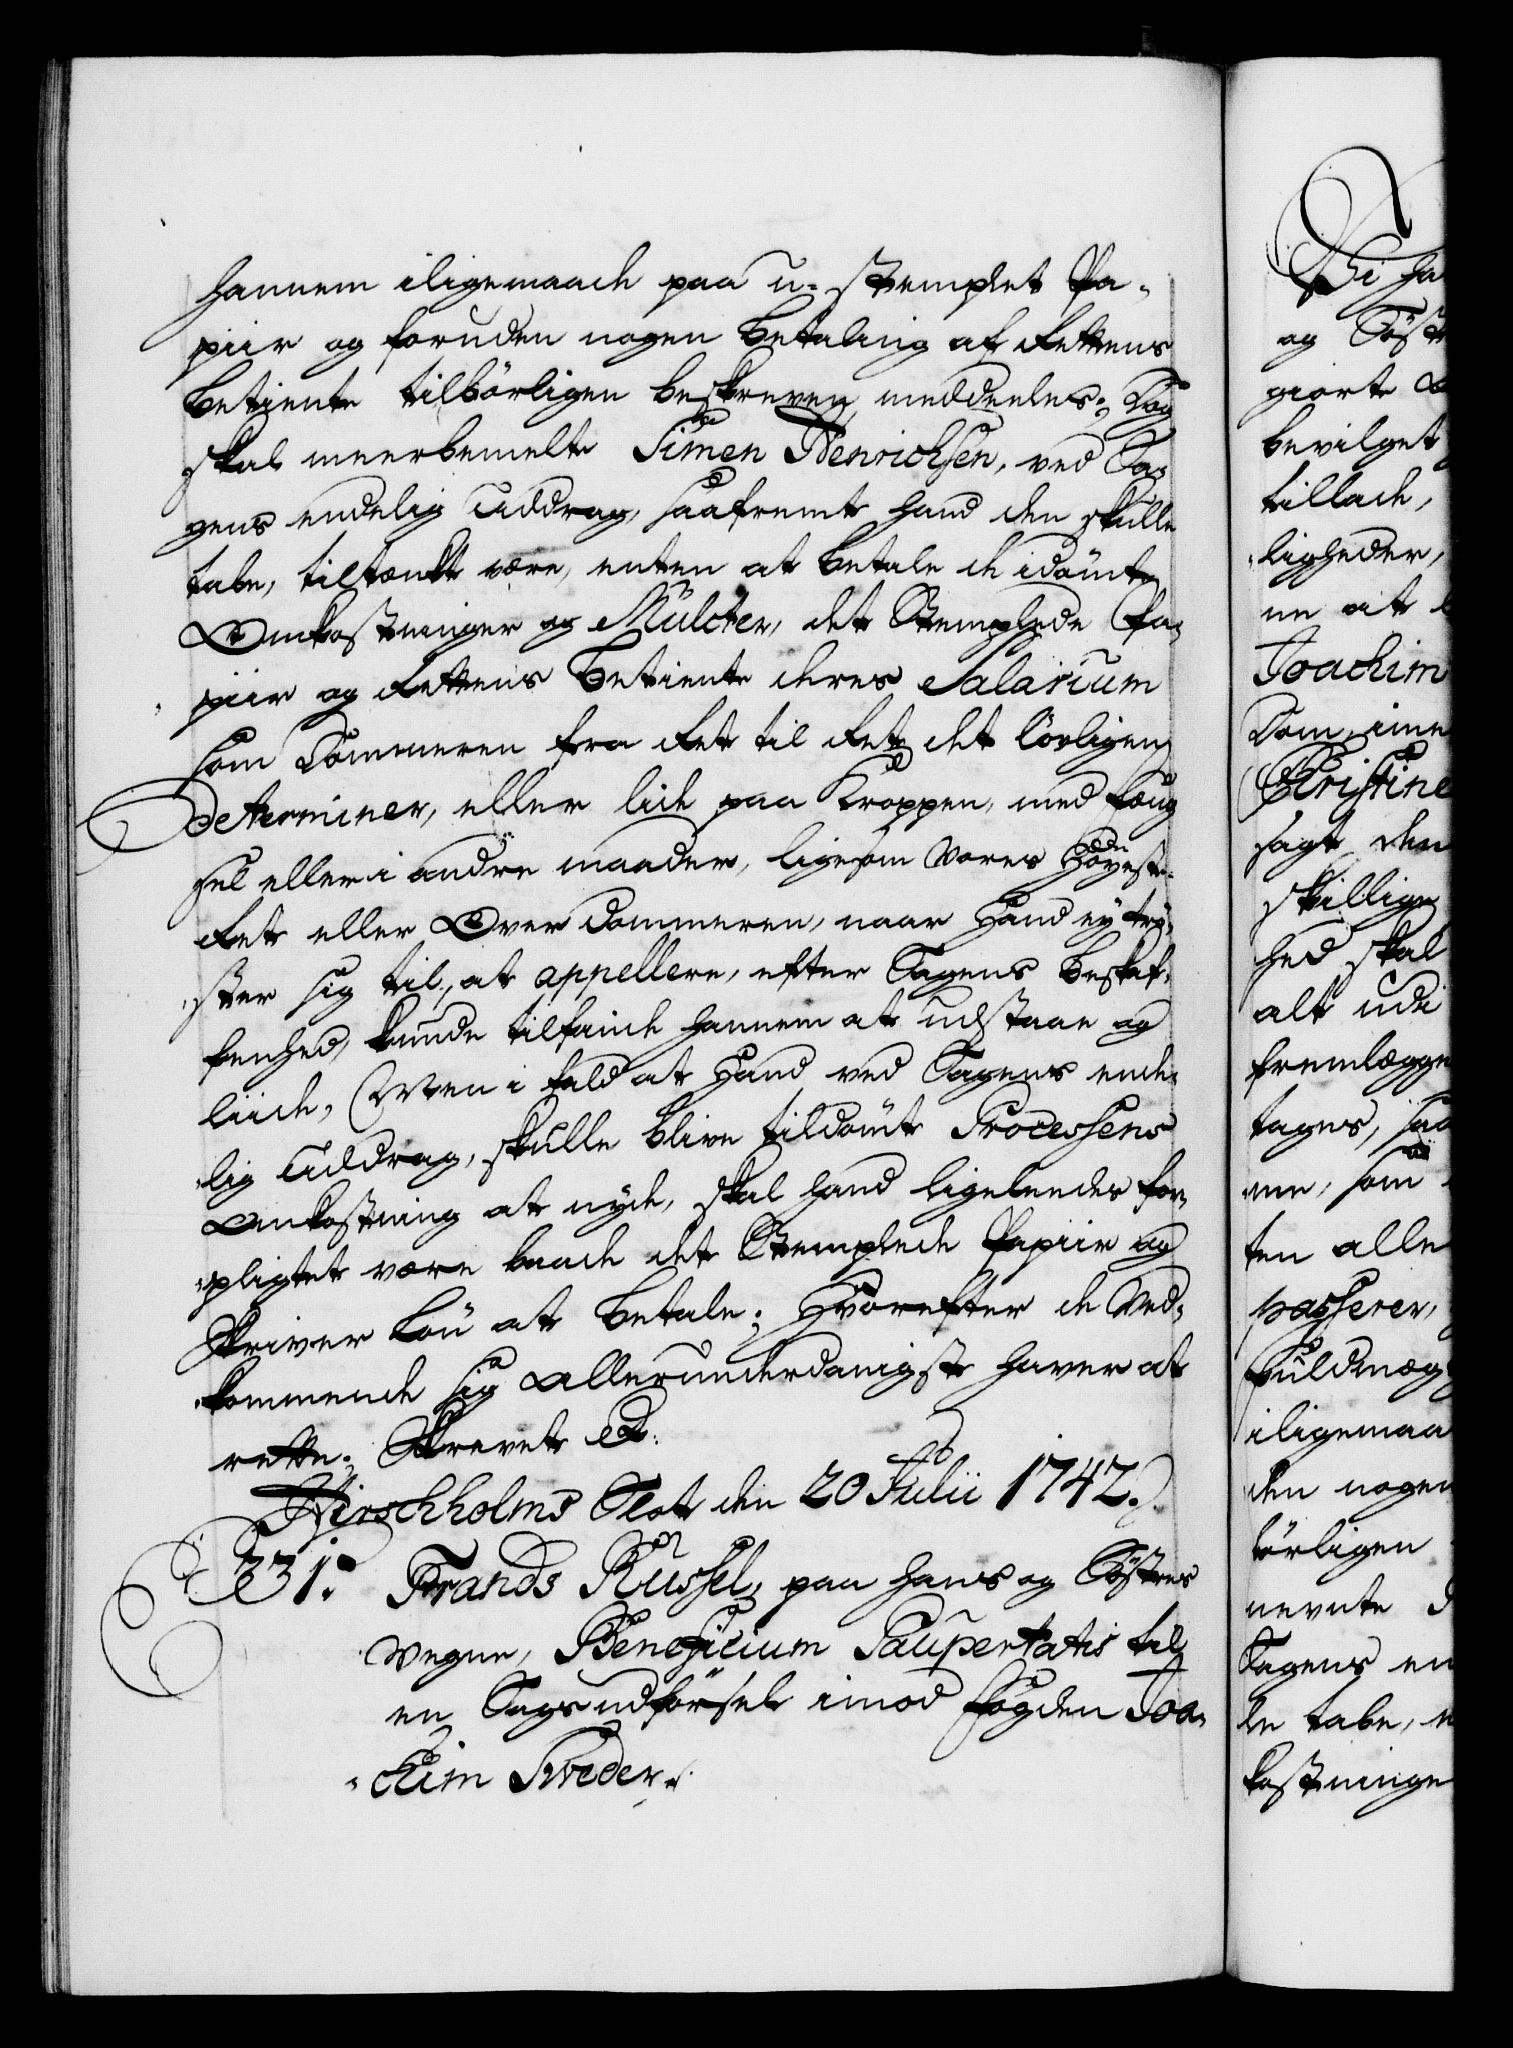 hannem iligemaade paa u-stemplet Pa-
piir og foruden nogen betaling af Rettens
betiente tilbörligen beskreven meddeeles; Dog
skal meerbemelte Simen Henrichsen, ved Sa-
gens endelig Uddrag, saafremt hand den skulle
tabe, tiltænkt være, enten at betale de idömte
Omkostninger og Mulcter, det Stemplede Pa-
piir og Rettens betiente deres Salarium
som Dommeren fra Ret til Ret det lovligen
determiner, eller lide paa Kroppen, med fæng-
sel eller i andre maader, ligesom Vores Höyeste-
Ret eller Over Dommeren, naar Hand ey trö-
ster sig til, at appellere, efter Sagens beskaf-
fenhed, kunde tilfinde hannem at udstaae og
liide, Men i fald at Hand ved Sagens ende-
lig Uddrag, skulle blive tildömt Processens
Omkostning at nyde, skal hand ligeleedes for-
pligtet være baade det Stemplede Papiir og
Skriver lön at betale; Hvorefter de Ved-
kommende sig allerunderdanigst haver at
rette. Skrevet &c:
Hirschholms Slot den 20 Julii 1742.
331. Frands Russel, paa hans og Söstres
Vegne, Beneficium Paupertatis til
en Sags udförsel imod fogden Joa-
chim Sveder.
Vi ha
og Söst
giorte
bevilget
tillade,
ligheder,
ne at
Joachim
Dom, ime
Christine
sagt den
skillige
hed skal
alt udi
fremlægge
tages, saa
me, som
ten alle
passerer,
Fuldmæg
iligemaa
den nogen
börligen
nevnte
Sagens en
le tabe,
kostninge